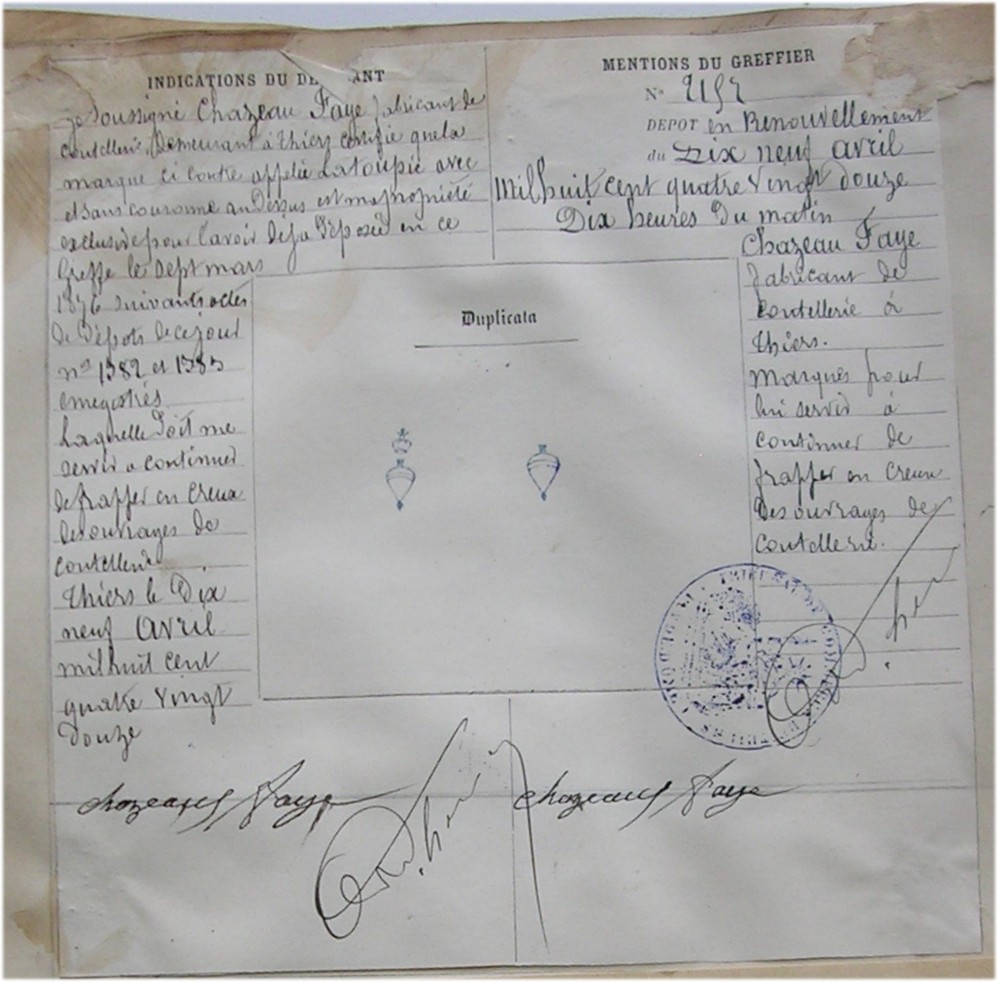 INDICATIONS DU DE ANT
Je Soussigné Chazeau Faye fabricant de
coutellerie, Demeurant à Thiers certifie que la
marque ci contre appelée La toupie avec
et sans couronne au Dessus est ma propriété
exclusive pour l'avoir déja Déposée en ce
Greffe le Sept mars
1876 suivant actes
de Dépots de ce jour
nos 1382 et 1383
enregistrés
Laquelle Doit me
servir a continuer
de frapper en Creux
des ouvrages de
coutellerie
Thiers le Dix
neuf avril
mil huit cent
quatre vingt
Douze
MENTIONS DU GREFFIER
No 2152
DEPOT en Renouvellement
du Dix neuf avril
Mil huit cent quatre vingt douze
Dix heures Du matin
Chazeau Faye
fabricant de
coutellerie à
Thiers.
Marques pour
lui servir à
continuer de
frapper en Creux
Des ouvrages de
Coutellerie.
Duplicata
Chazeau Faye
Chazeau Faye